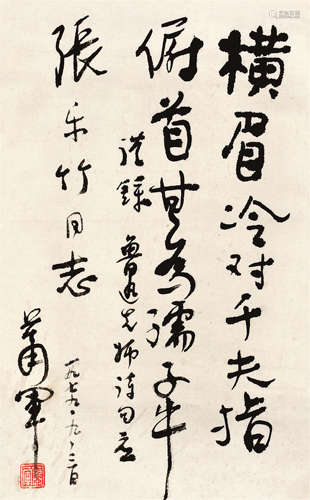 横眉冷对千夫指
俯首甘为孺子牛
谨録 鲁迅先师诗句应
張乐竹同志
一九七九.九.三日
蕭軍